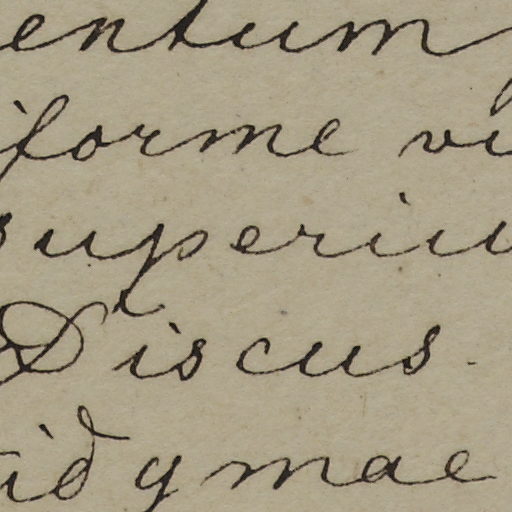 entum
iforme vi
superiu
Discus
idymae